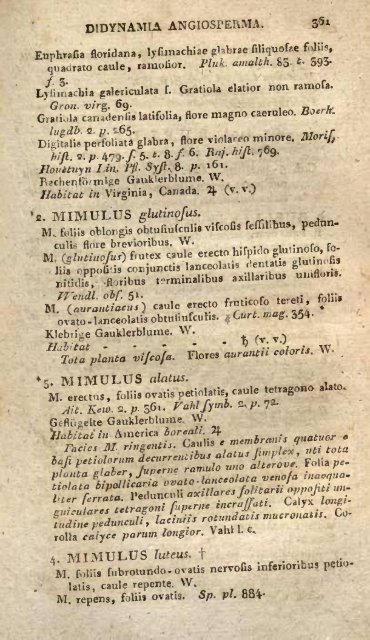 DIDYNAMIA ANGIOSPERMA. 361
Euphrasia floridana, lysimachiae glabrae siliquosae foliis,
quadrato caule, ramosior. Pluk. amalth. 83. t. 393.
f. 3.
Lysimachia galericulata s. Gratiola elatior non ramosa.
Gron. virg. 69.
Gratiola canadensis latifolia, flore magno caeruleo. Boerh.
lugdb. 2. p. 265.
Digitalis perfoliata glabra, flore violaceo minore. Moris,
hist. 2. p. 479. s. 5. t. 8. f. 6. Raj. hist. 769.
Houttuyn Lin. Pfl. Syst. 8. p. 161.
Rachenförmige Gauklerblume. W.
Habitat in Virginia, Canada. ♃ (v. v.)
*2. MIMULUS glutinosus.
M. foliis oblongis obtusiusculis viscosis sessilibus, pedun-
culis flore brevioribus. W.
M. (glutinosus) frutex caule erecto hispido glutinoso, fo-
liis oppositis conjunctis lanceolatis dentatis glutinosis
nitidis, floribus terminalibus axillaribus unifloris.
Wendl. obs. 51.
M. (aurantiacus) caule erecto fruticoso tereti, foliis
ovato-lanceolatis obtusiusculis. Curt. mag. 354.
Klebrige Gauklerblume. W.
Habitat - - - - ♄ (v. v.)
Tota planta viscosa. Flores aurantii coloris. W.
*3. MIMULUS alatus.
M. erectus, foliis ovatis petiolatis, caule tetragono alato.
Ait. Kew. 2. p. 361. Vahl symb. 2. p. 72.
Geflügelte Gauklerblume. W.
Habitat in America boreali. ♃
Facies M. ringentis. Caulis e membranis quatuor a
basi petiolorum decurrentibus alatus simplex, uti tota
planta glaber, superne ramulo uno alterove. Folia pe-
tiolata bipollicaria ovato-lanceolata venosa inaequa-
liter serrata. Pedunculi axillares solitarii oppositi un-
guiculares tetragoni superne incrassati. Calyx longi-
tudine pedunculi, laciniis rotundatis mucronatis. Co-
rolla calyce parum longior. Vahl l. c.
4. MIMULUS luteus. †
M. foliis subrotundo-ovatis nervosis inferioribus petio-
latis, caule repente. W.
M. repens, foliis ovatis. Sp. pl. 884.